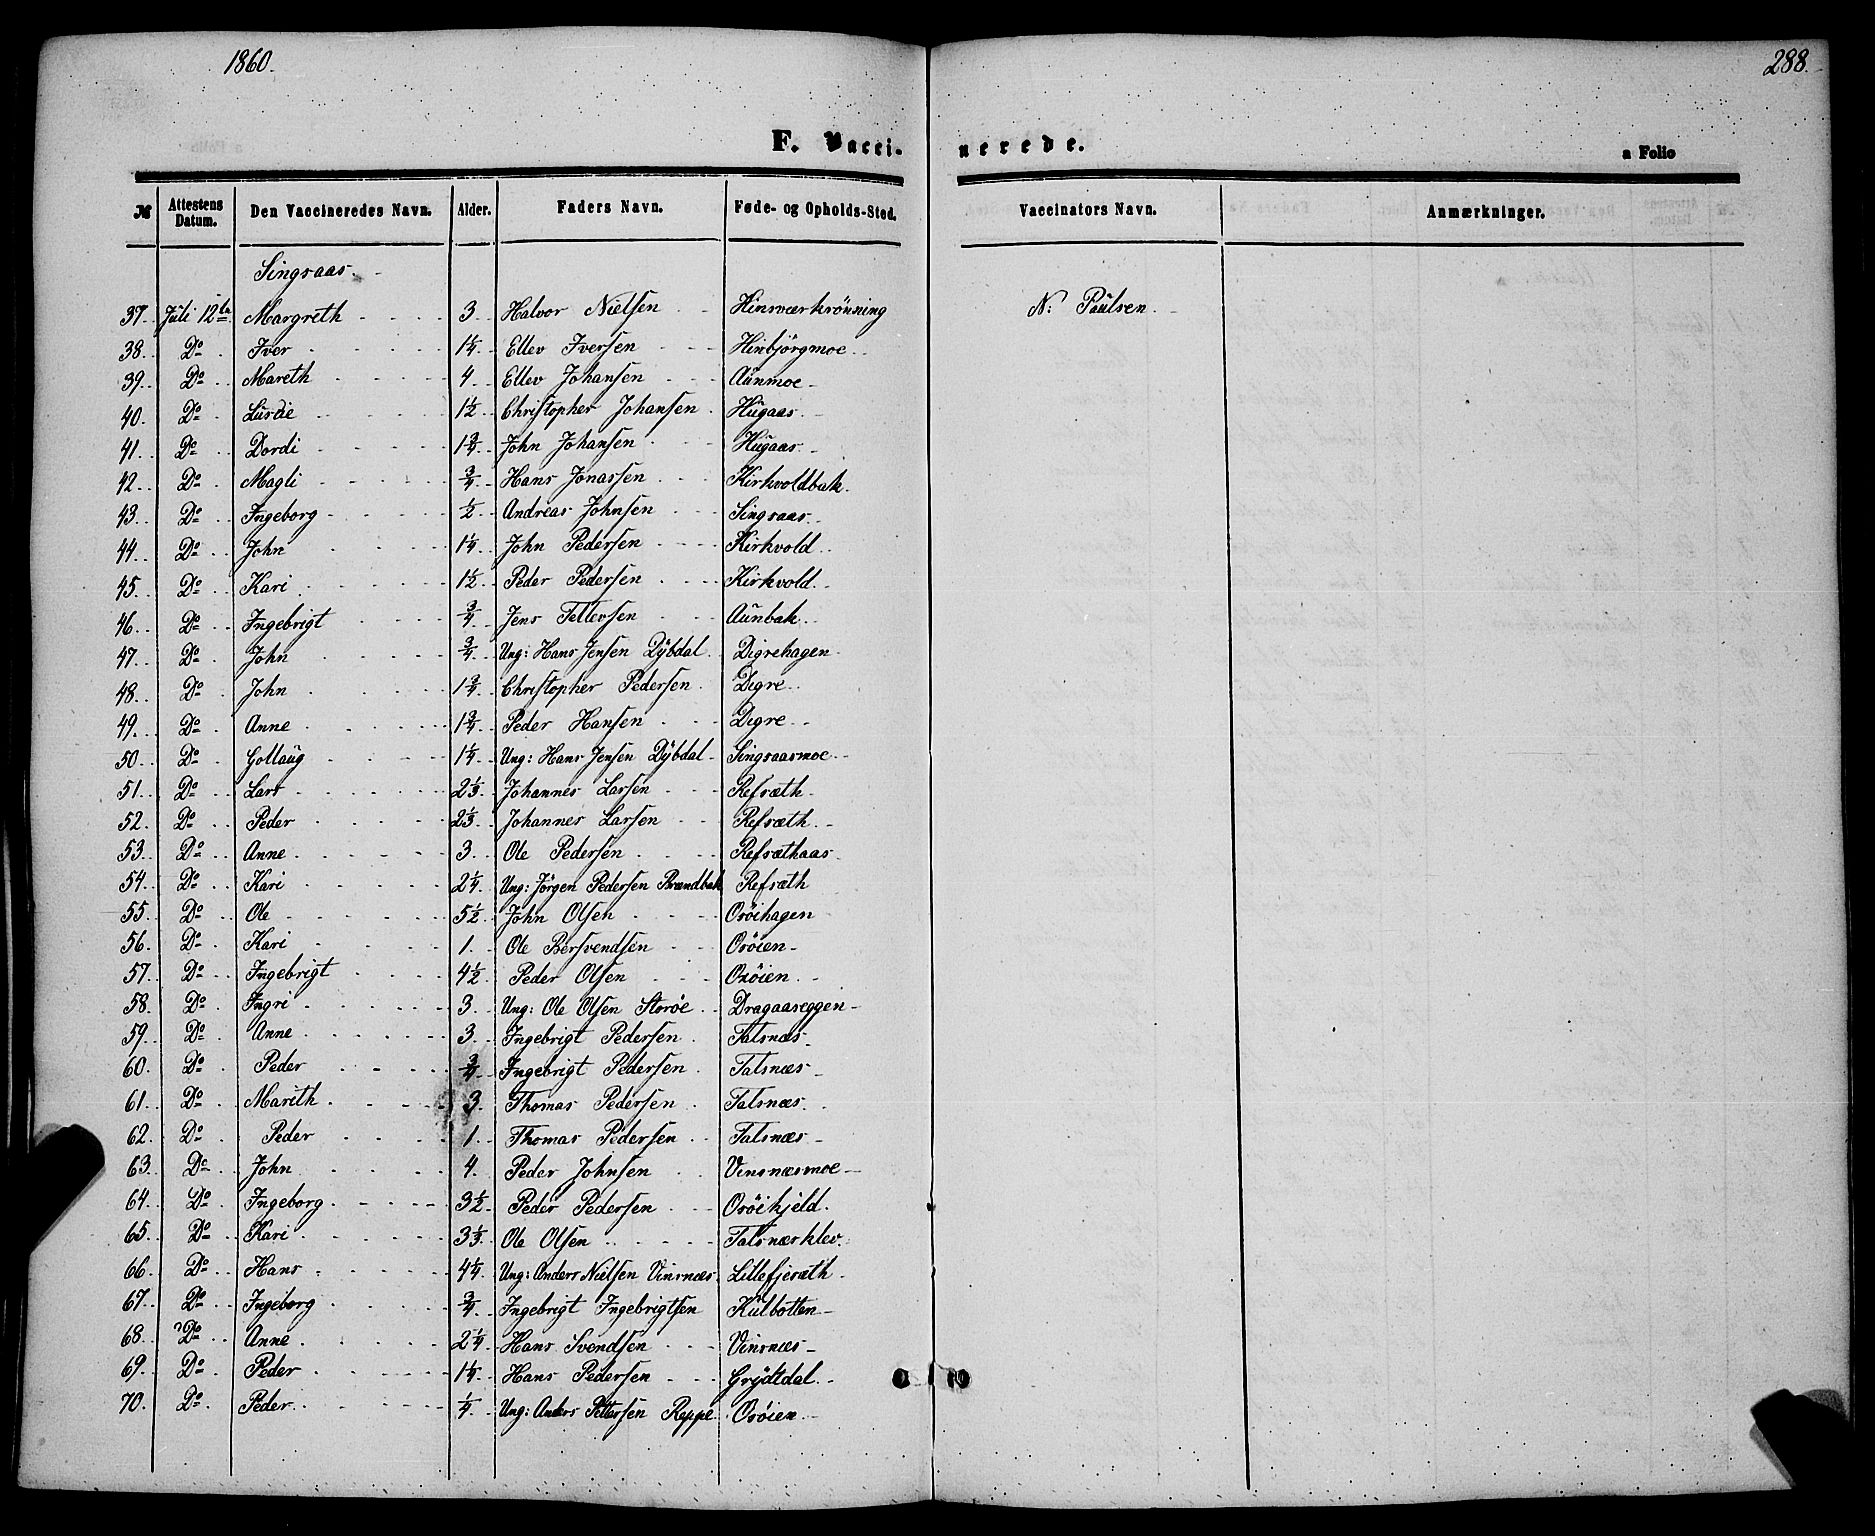 1860.
288.
F. Vacci-nerede.
a Folio
№ Attestens Datum. Den Vaccineredes Navn. Alder. Faders Navn. Føde- og Opholds-Sted. Vaccinators Navn. Anmærkninger.
Singsaas.
37. Juli 12te Margreth 3 Halvor Nielsen N: Paulsen.
38. Do Iver 1¼ Ellev Iversen Hinbjörgmoe
39. Do Mareth 4 Ellev Johansen Aunmoe
40. Do 1½ Christopher Johansen Hugaas
41. Do Dordi 1¾ John Johansen Hugaas
42. Do Magli ¾ Hans Jonassen Kirkvoldbak.
43. Do Ingeborg ½ Andreas Johnsen Singsaas
44. Do John 1¼ John Pedersen Kirkvold
45. Do Kari 1½ Peder Pedersen Kirkvold
46. Do Ingebrigt ¾ Jens Tellevsen Aunbak
47. Do John ¾ Ung: Hans Jensen Dÿbdal Digrehagen
48. Do John 1¾ Christopher Pedersen Digre
49. Do Anne 1¾ Peder Hansen Digre
50. Do Gollaug 1¼ Ung: Hans Jensen Dÿbdal Singsaasmoe
51. Do Lars 2⅓ Johannes Larsen Refsæth
52. Do Peder 2⅓ Johannes Larsen Refsæth
53. Do Anne 3 Ole Pedersen Refsæthaas
54. Do Kari 2¼ Ung: Jörgen Pedersen Brændbak Refsæth
55. Do Ole 5½ John Olsen Oröihagen
56. Do Kari 1. Ole Bersvendsen Oröien
57. Do Ingebrigt 4½ Peder Olsen Oröien
58. Do Ingri 3 Ung: Ole Olsen Storöe Dragaaseggen
59. Do Anne 3 Ingebrigt Pedersen Talsnæs
60. Do Peder ¾ Ingebrigt Pedersen Talsnæs
61. Do Marith 3 Thomas Pedersen Talsnæs
62. Do Peder 1. Thomas Pedersen Talsnæs
63. Do John 4. Peder Johnsen Vinsnæsmoe
64. Do Ingeborg 3½ Peder Pedersen Oröikjeld.
65. Do Kari 3⅓ Ole Olsen Talsnæsklev
66. Do Hans 4¼ Ung: Anders Nielsen Vinsnæs Lillefjeræth
67. Do Ingeborg ¾ Ingebrigt Ingebrigtsen Kulbotten
68. Do Anne 2¼ Hans Svendsen Vinsnæs
69. Do Peder 1¼ Hans Pedersen Grÿdtdal
70. Do Peder ¼ Ung: Anders Pettersen Reppe Oröien